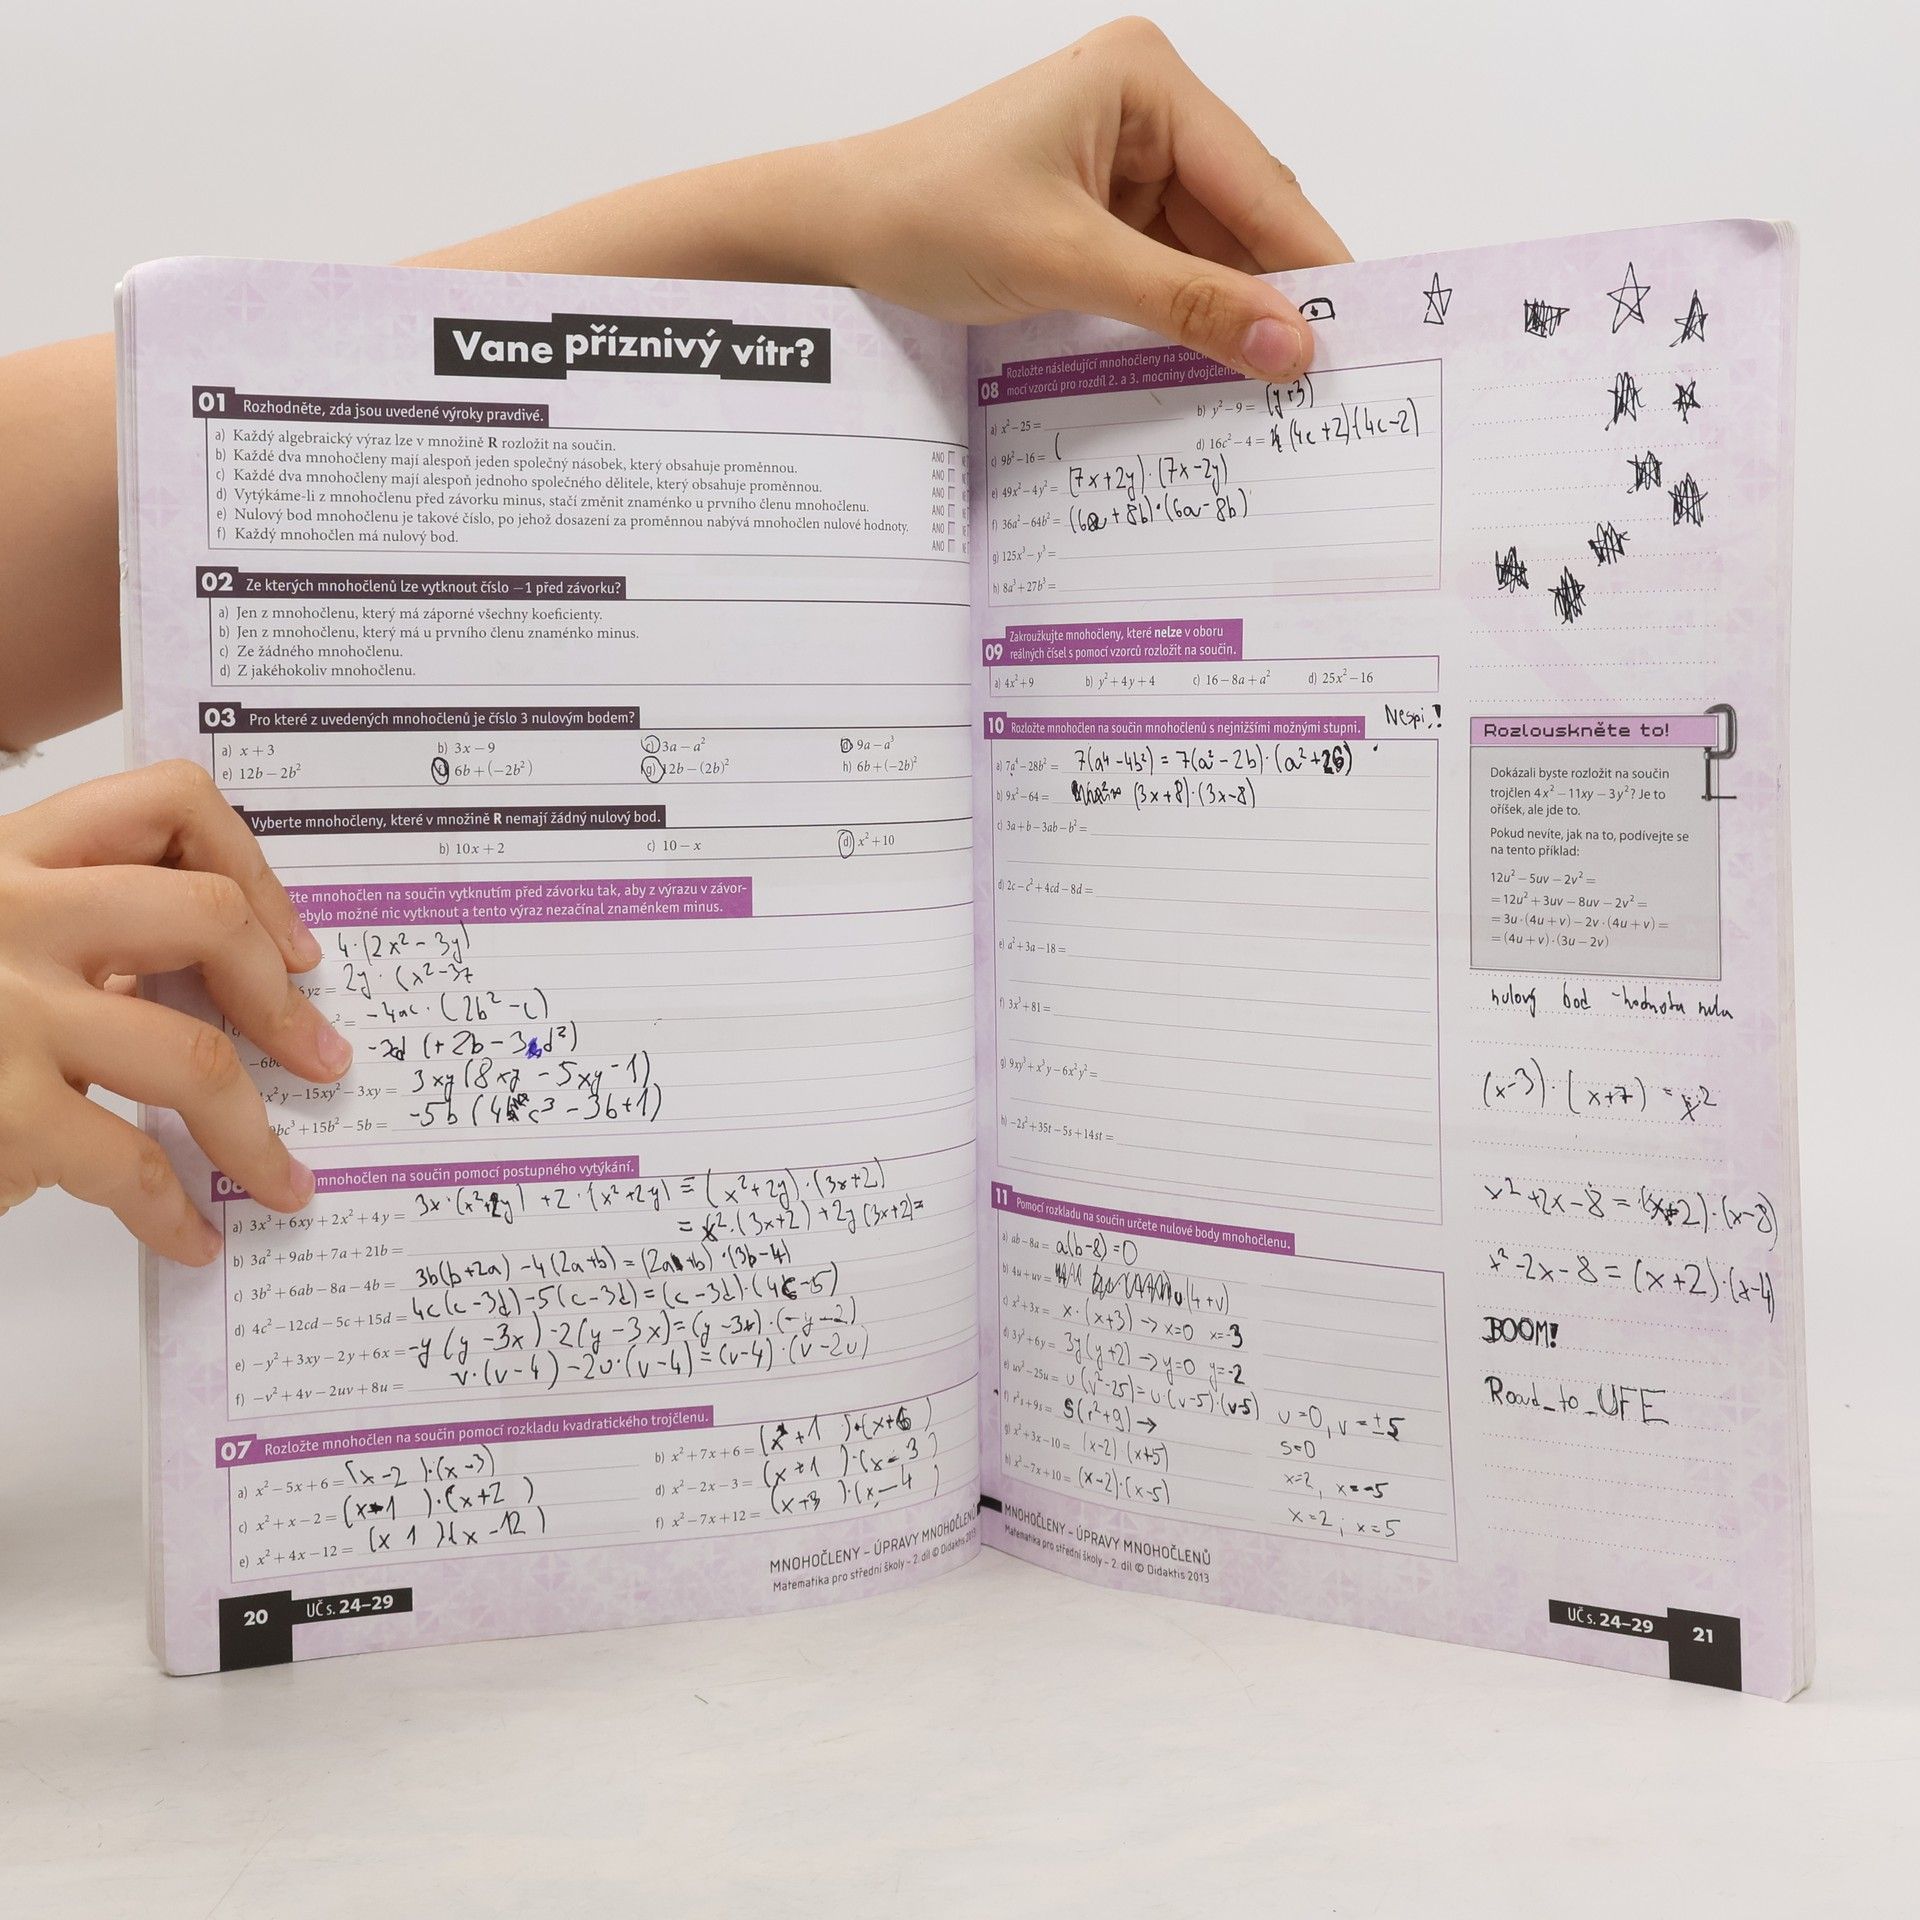 Vane příznivý vítr?
01 Rozhodněte, zda jsou uvedené výroky pravdivé.
a) Každý algebraický výraz lze v množině R rozložit na součin.
b) Každé dva mnohočleny mají alespoň jeden společný násobek, který obsahuje proměnnou.
c) Každé dva mnohočleny mají alespoň jednoho společného dělitele, který obsahuje proměnnou.
d) Vytýkáme-li z mnohočlenu před závorku minus, stačí změnit znaménko u prvního členu mnohočlenu.
e) Nulový bod mnohočlenu je takové číslo, po jehož dosazení za proměnnou nabývá mnohočlen nulové hodnoty.
f) Každý mnohočlen má nulový bod.
ANO
ANO
ANO
ANO
ANO
ANO
02 Ze kterých mnohočlenů lze vytknout číslo −1 před závorku?
a) Jen z mnohočlenu, který má záporné všechny koeficienty.
b) Jen z mnohočlenu, který má u prvního členu znaménko minus.
c) Ze žádného mnohočlenu.
d) Z jakéhokoliv mnohočlenu.
03 Pro které z uvedených mnohočlenů je číslo 3 nulovým bodem?
a) x + 3 b) 3x − 9 c) 3a − a² d) 9a − a³
e) 12b − 2b² f) 6b + (−2b²) g) 12b − (2b)² h) 6b + (−2b)²
Vyberte mnohočleny, které v množině R nemají žádný nulový bod.
b) 10x + 2 c) 10 − x d) x² + 10
žte mnohočlen na součin vytknutím před závorku tak, aby z výrazu v závor-
ebylo možné nic vytknout a tento výraz nezačínal znaménkem minus.
= 4·(2x² − 3y)
yz = 2y·(x² − 3z
² = −4ac·(2b² − c)
−6b (+2b − 3d²)
x²y − 15xy² − 3xy = 3xy(8xy − 5xy − 1)
bc³ + 15b² − 5b = −5b(4c³ − 3b + 1)
mnohočlen na součin pomocí postupného vytýkání.
a) 3x³ + 6xy + 2x² + 4y = 3x·(x²+2y) + 2·(x²+2y) = (x²+2y)·(3x+2)
= x²·(3x+2) + 2y(3x+2) =
b) 3a² + 9ab + 7a + 21b =
c) 3b² + 6ab − 8a − 4b = 3b(b+2a) − 4(2a+b) = (2a+b)·(3b−4)
d) 4c² − 12cd − 5c + 15d = 4c(c−3d) − 5(c−3d) = (c−3d)·(4c−5)
e) −y² + 3xy − 2y + 6x = −y(y−3x) − 2(y−3x) = (y−3x)·(−y−2)
f) −v² + 4v − 2uv + 8u = v·(v−4) − 2u·(v−4) = (v−4)·(v−2u)
07 Rozložte mnohočlen na součin pomocí rozkladu kvadratického trojčlenu.
a) x² − 5x + 6 = (x−2)·(x−3) b) x² + 7x + 6 = (x+1)·(x+6)
c) x² + x − 2 = (x−1)·(x+2) d) x² − 2x − 3 = (x+1)·(x−3)
e) x² + 4x − 12 = (x 1)(x −12) f) x² − 7x + 12 = (x+3)·(x−4)
MNOHOČLENY – ÚPRAVY MNOHOČLENŮ
Matematika pro střední školy – 2. díl © Didaktis 2013
20 UČ s. 24–29
08 Rozložte následující mnohočleny na souč
mocí vzorců pro rozdíl 2. a 3. mocniny dvojčlenu
a) x² − 25 = b) y² − 9 = (y+3)
c) 9b² − 16 = ( d) 16c² − 4 = (4c+2)·(4c−2)
e) 49x² − 4y² = (7x+2y)·(7x−2y)
f) 36a² − 64b² = (6a+8b)·(6a−8b)
g) 125x³ − y³ =
h) 8a³ + 27b³ =
09 Zakroužkujte mnohočleny, které nelze v oboru
reálných čísel s pomocí vzorců rozložit na součin.
a) 4x² + 9 b) y² + 4y + 4 c) 16 − 8a + a² d) 25x² − 16
10 Rozložte mnohočlen na součin mnohočlenů s nejnižšími možnými stupni. Nespi!
a) 7a⁴ − 28b² = 7(a⁴−4b²) = 7(a²−2b)·(a²+2b)
b) 9x² − 64 = (3x+8)·(3x−8)
c) 3a + b − 3ab − b² =
d) 2c − c² + 4cd − 8d =
e) a² + 3a − 18 =
f) 3x³ + 81 =
g) 9xy³ + x³y − 6x²y² =
h) −2s² + 35t − 5s + 14st =
11 Pomocí rozkladu na součin určete nulové body mnohočlenu.
a) ab − 8a = a(b−8) = 0
b) 4u + uv = u(4+v)
c) x² + 3x = x·(x+3) → x=0 x=−3
d) 3y² + 6y = 3y(y+2) → y=0 y=−2
e) uv² − 25u = u(v²−25) = u(v−5)·(v−5) u=0, v=±5
f) r²s + 9s = s(r²+9) → s=0
g) x² + 3x − 10 = (x−2)(x+5) x=2, x=−5
h) x² − 7x + 10 = (x−2)·(x−5) x=2; x=5
MNOHOČLENY – ÚPRAVY MNOHOČLENŮ
Matematika pro střední školy – 2. díl © Didaktis 2013
Rozlouskněte to!
Dokázali byste rozložit na součin
trojčlen 4x² − 11xy − 3y²? Je to
oříšek, ale jde to.
Pokud nevíte, jak na to, podívejte se
na tento příklad:
12u² − 5uv − 2v² =
= 12u² + 3uv − 8uv − 2v² =
= 3u·(4u + v) − 2v·(4u + v) =
= (4u + v)·(3u − 2v)
nulový bod - hodnota nula
(x−3)·(x+7) = x²
x² + 2x − 8 = (x+2)·(x−8)
x² − 2x − 8 = (x+2)·(x−4)
BOOM!
Road_to_UFE
UČ s. 24–29 21